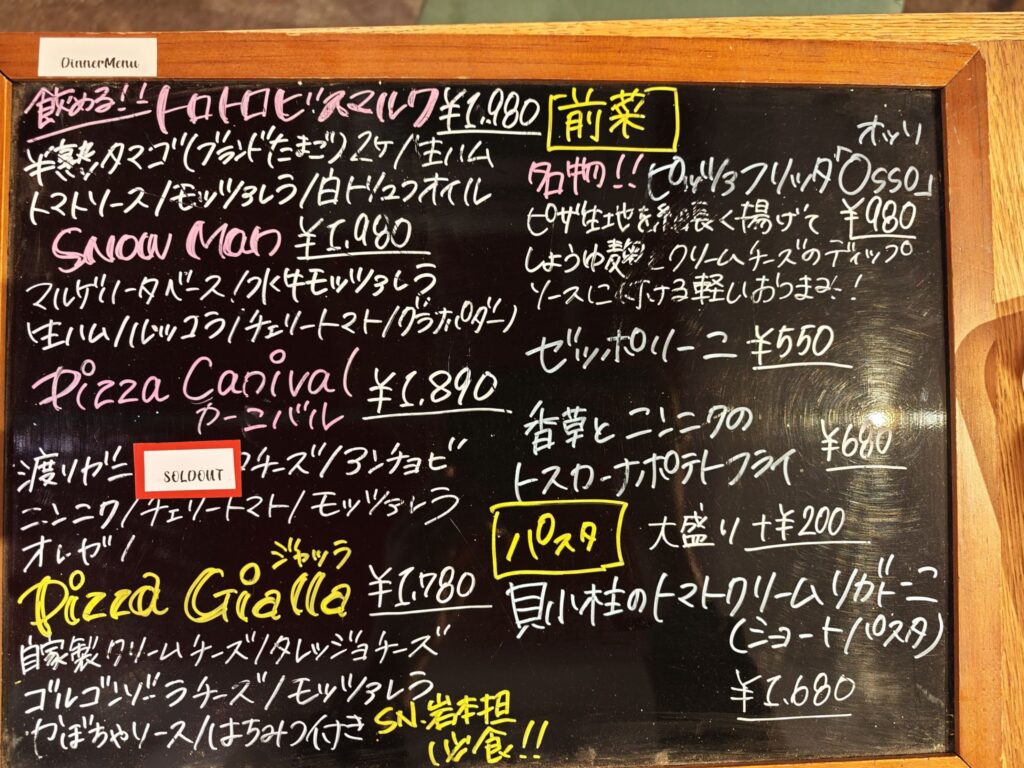 DinnerMenu
飲める!! トロトロビスマルク ¥1,980
半熟タマゴ(ブランドたまご)2ケ/生ハム
トマトソース/モッツァレラ/白トリュフオイル
Snow Man ¥1,980
マルゲリータベース/水牛モッツァレラ
生ハム/ルッコラ/チェリートマト/グラナパダーノ
Pizza Canival ¥1,890
カーニバル
渡りガニ
SOLDOUT
チーズ/アンチョビ
ニンニク/チェリートマト/モッツァレラ
オレガノ
ジャッラ
Pizza Gialla ¥1,780
自家製クリームチーズ/タレッジョチーズ
ゴルゴンゾーラチーズ/モッツァレラ
かぼちゃソース/はちみつ付き
SN.岩本担
必食!!
前菜
オッソ
名物!! ピッツァフリッタ「Osso」
ピザ生地を細長く揚げて ¥980
しょうゆ麹とクリームチーズのディップ
ソースに付ける軽いおつまみ!
ゼッポリーニ ¥550
香草とニンニクの
トスカーナポテトフライ ¥680
パスタ 大盛り +¥200
貝小柱のトマトクリームリガトーニ
(ショートパスタ)
¥1,680